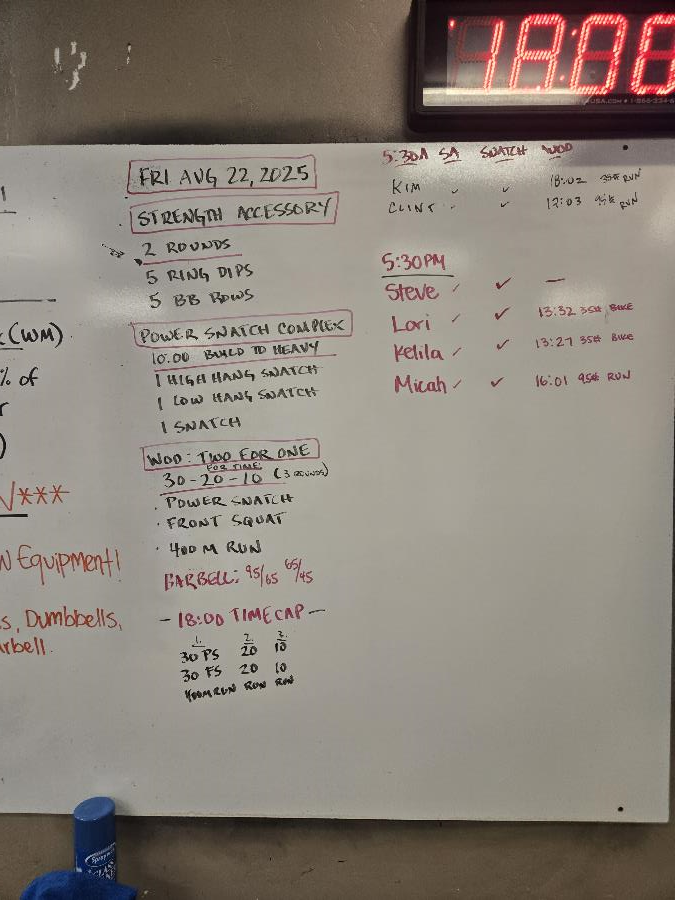 18:08
FRI AUG 22, 2025
STRENGTH ACCESSORY
2 ROUNDS
5 RING DIPS
5 BB ROWS
POWER SNATCH COMPLEX
10:00 BUILD TO HEAVY
1 HIGH HANG SNATCH
1 LOW HANG SNATCH
1 SNATCH
WOD: TWO FOR ONE
FOR TIME:
30-20-10 (3 ROUNDS)
. POWER SNATCH
· FRONT SQUAT
· 400 M RUN
BARBELL: 95/65 65/45
- 18:00 TIME CAP -
1. 2. 3.
30 PS 20 10
30 FS 20 10
400M RUN RUN RUN
5:30A SA SNATCH WOD
KIM ✓ ✓ 18:02 35# RUN
CLINT ✓ ✓ 12:03 95# RUN
5:30PM
Steve ✓ ✓ —
Lori ✓ ✓ 13:32 35# BIKE
Kelila ✓ ✓ 13:27 35# BIKE
Micah ✓ ✓ 16:01 95# RUN
(WM)
% of
r
)
***
Equipment!
s, Dumbbells,
rbell.